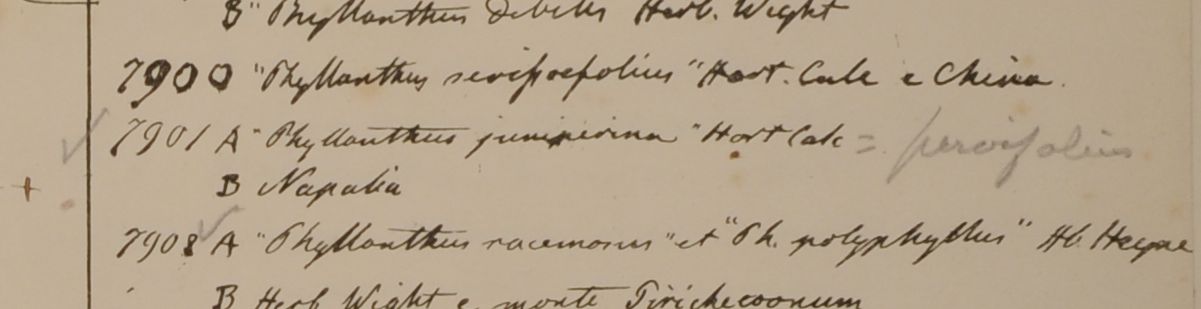 B "Phyllanthus debilis Herb. Wight
7900 "Phyllanthus serissaefolius" Hort. Calc e China.
7901 A "Phyllanthus juniperina" Hort Calc = parvifolius
B Napalia
7908 A "Phyllanthus racemosus" et "Ph. polyphyllus" Hb. Heyne
B Herb Wight e monte Tirichecoonum